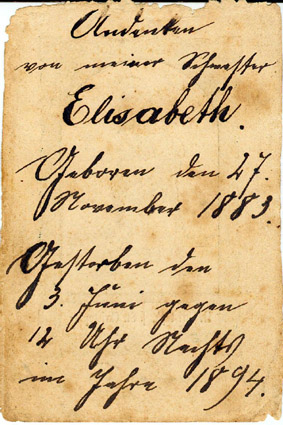 Andenken
von meiner Schwester
Elisabeth.
Geboren den 27.
November 1883.
Gestorben den
3. Juni gegen
12 Uhr Nachts
im Jahre 1894.